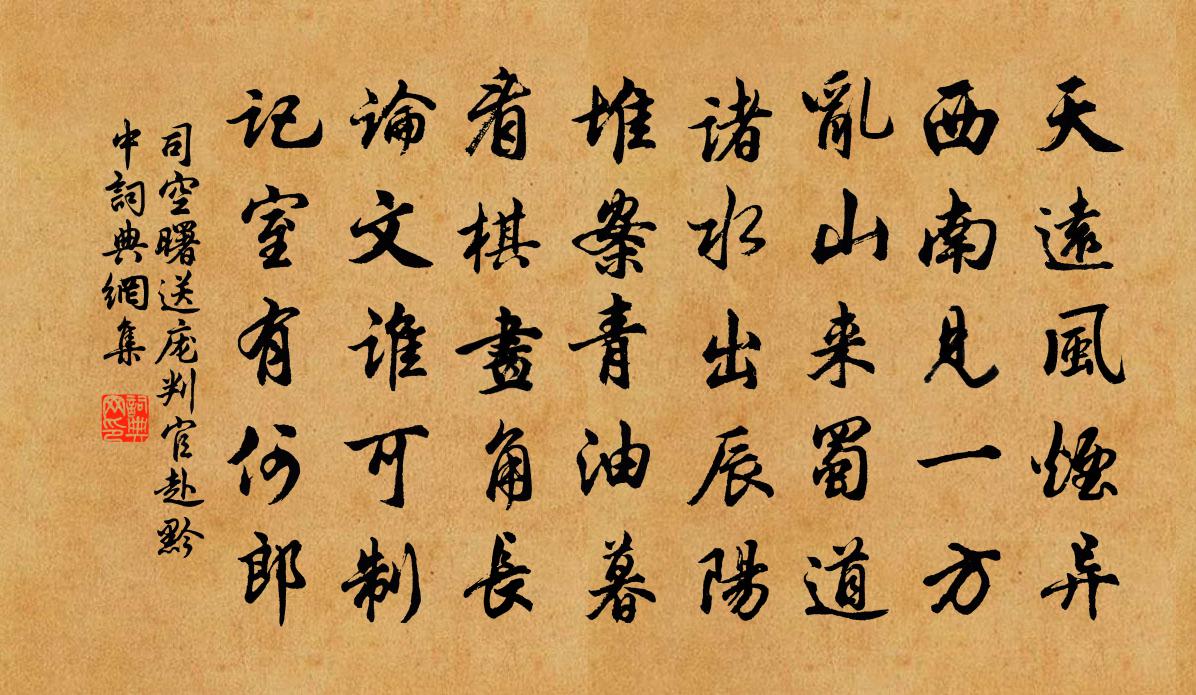 天遠風煙异
西南見一方
亂山来蜀道
諸水出辰陽
堆案青油暮
看棋畫角長
論文誰可制
記室有何郎
司空曙送庞判官赴黔
中詞典網集
詞典
网印